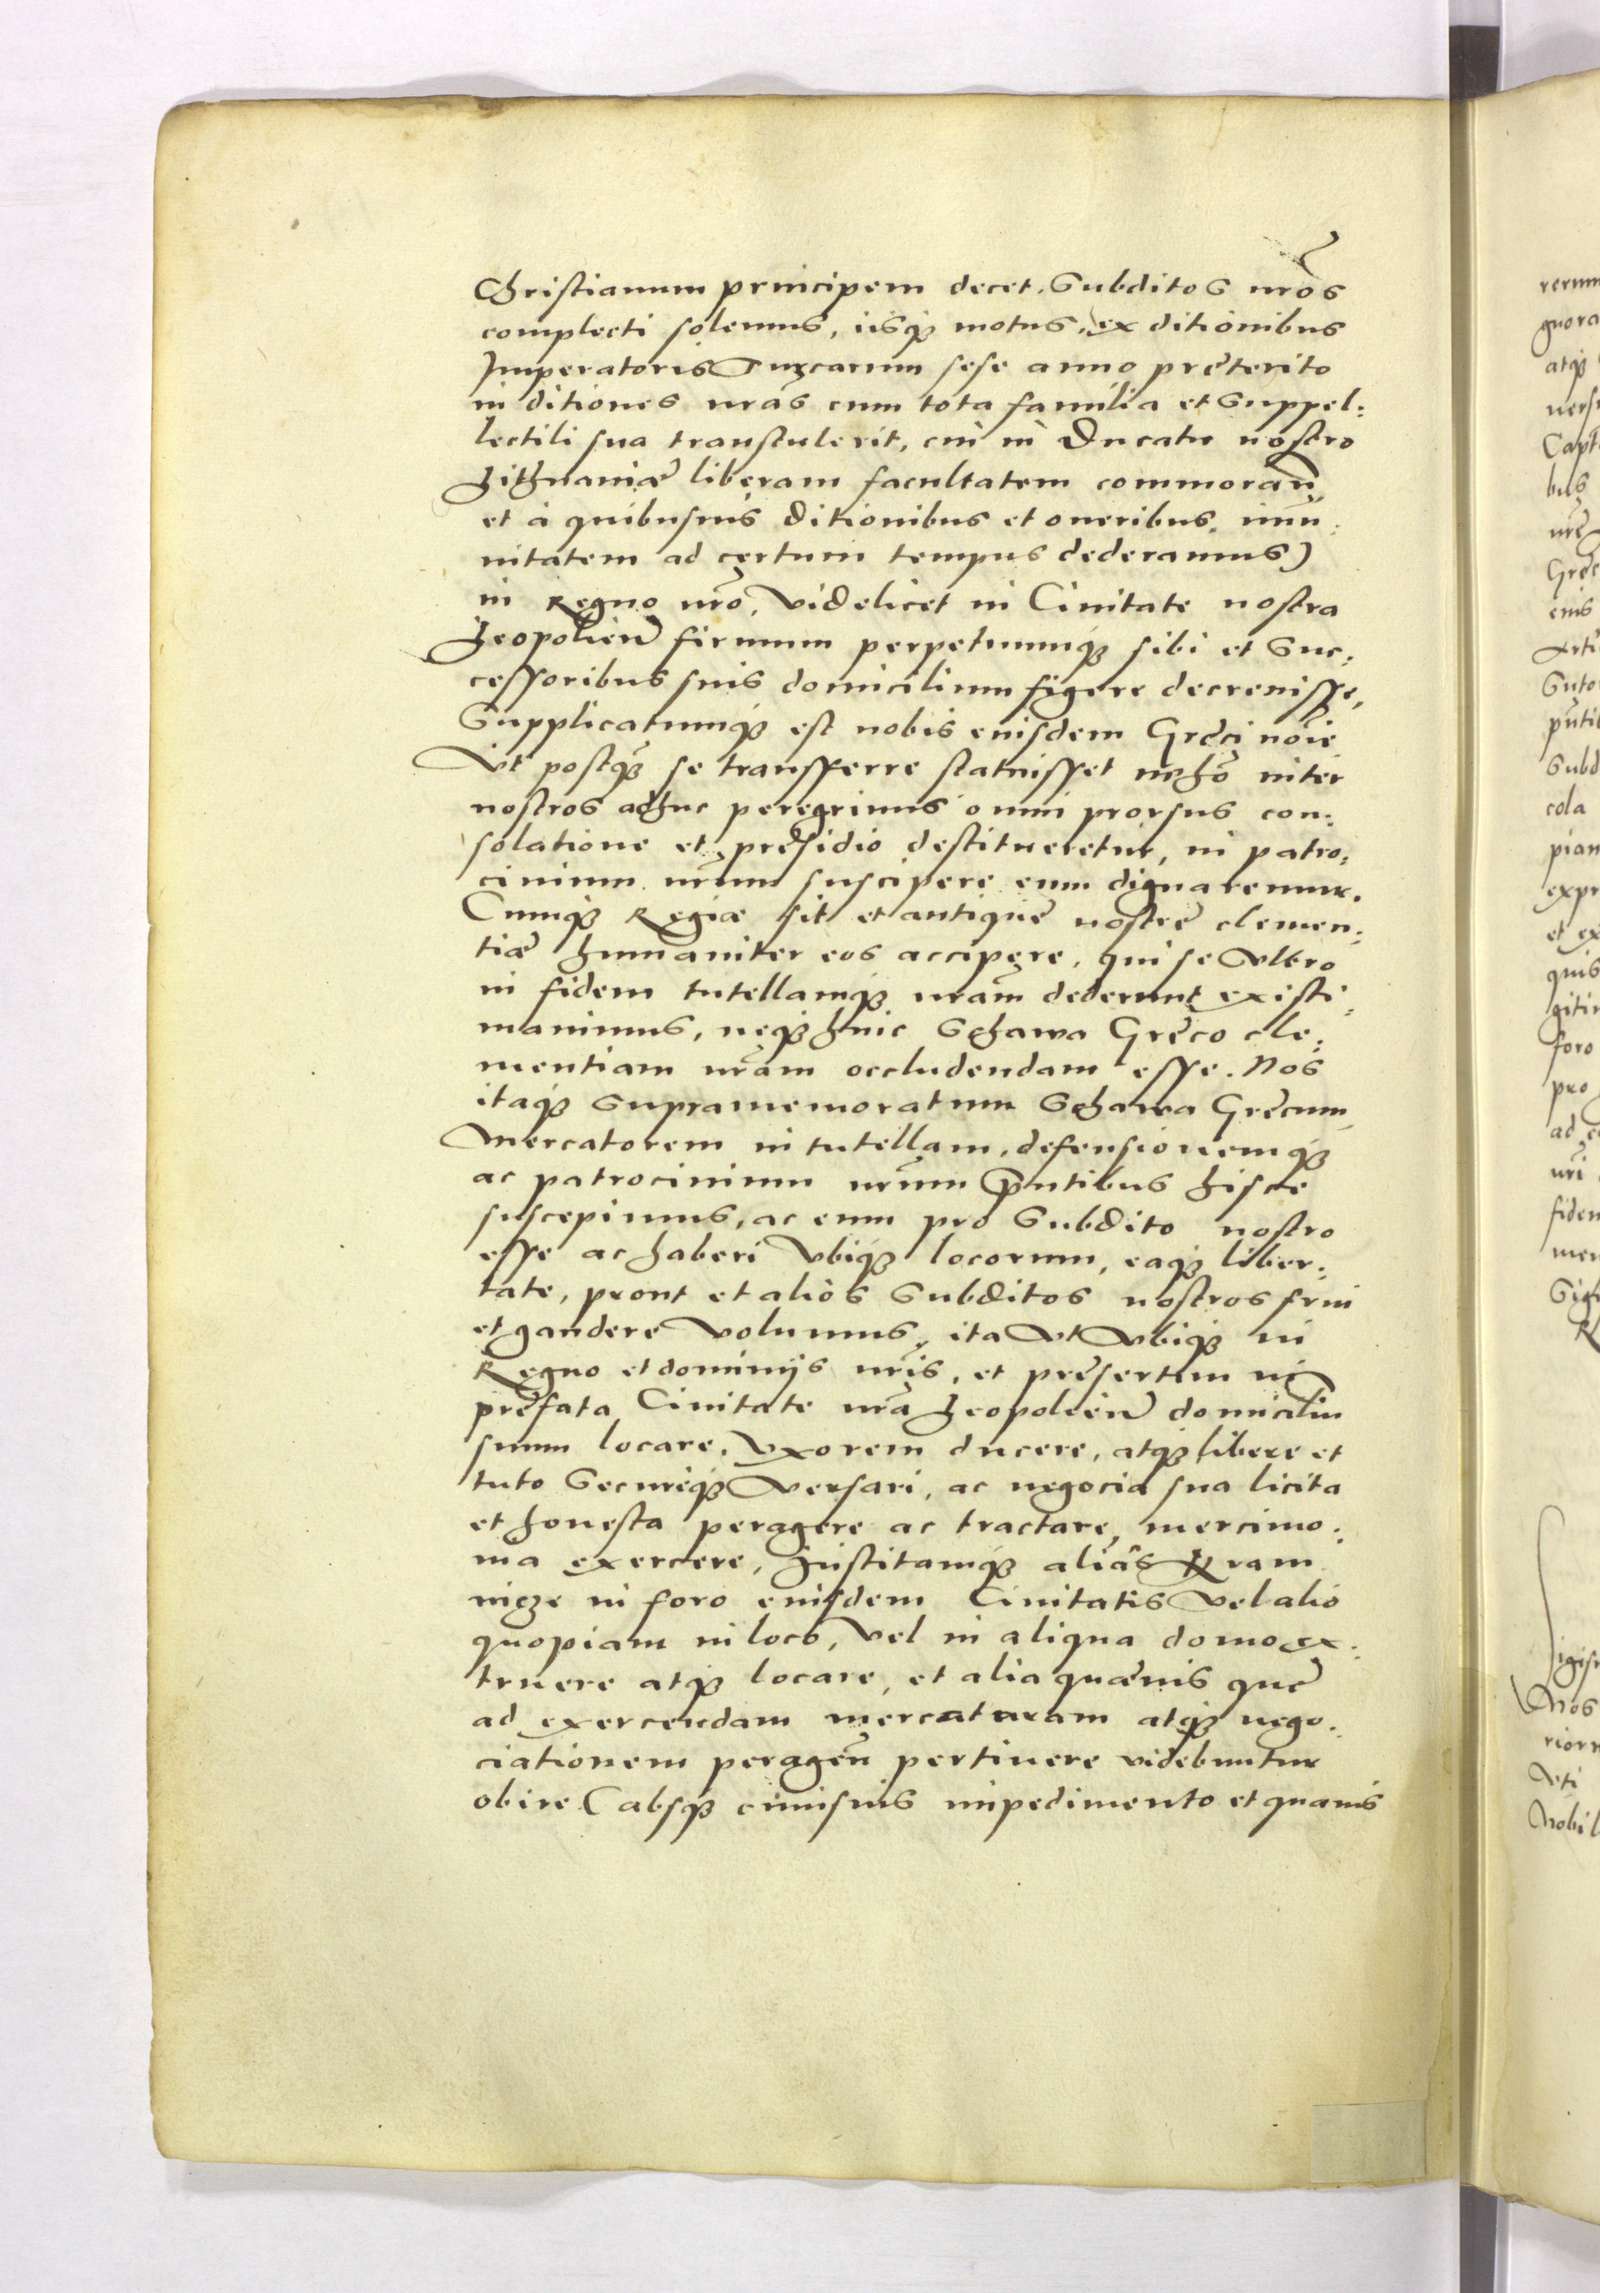 Christianum principem decet, Subditos nr̃os
complecti solemus, ijsqꝫ motus, ex ditionibus
Imperatoris Turcarum sese anno preterito
in ditiones nr̃as cum tota familia et Suppel:
lectili sua transtulerit, cui in Ducatu nostro
Lithuaniæ liberam facultatem commoran̄
et à quibusuis ditionibus et oneribus, im̄u:
nitatem ad certum tempus dederamus)
in Regno nr̃o, videlicet in Ciuitate nostra
Leopolien̄ firmum perpetuumqꝫ sibi et Suc:
cessoribus suis domicilium figere decreuisse,
Supplicatumqꝫ est nobis eiusdem Gręci noīe
Vt postqꝫ se transferre statuisset inter
nostros adhuc peregrinus omni prorsus con:
solatione et pręsidio destitueretur, in patro:
cinium nr̃um suscipere eum dignaremur.
Cumqꝫ Regiæ sit et antiquę nostrę clemen:
tiæ humaniter eos accipere, qui se vltro
in fidem tutellamqꝫ nr̃am dederunt existi:
mauimus, neqꝫ huic Schawa Gręco cle:
mentiam nr̃am occludendam esse. Nos
itaqꝫ Supramemoratum Schawa Gręcum
Mercatorem in tutellam, defensionemqꝫ
ac patrocinium nr̃um pñtibus hisce
suscepimus, ac eum pro Subdito nostro
esse ac haberi vbiqꝫ locorum, eaqꝫ liber:
tate, prout et alios Subditos nostros frui
et gaudere volumus, ita vt vbiqꝫ in
Regno et dominijs nr̃is, et pręsertim in
pręfata Ciuitate nr̃a Leopolien̄ domiciliū
suum locare, vxorem ducere, atqꝫ libere et
tuto Secureqꝫ versari, ac negocia sua licita
et honesta peragere ac tractare, mercimo:
nia exercere, Institamqꝫ alias Kram
nicze in foro eiusdem Ciuitatis vel alio
quopiam in loco, vel in aliqua domo ex:
truere atqꝫ locare, et alia quæuis quę
ad exercendam mercaturam atqꝫ nego:
ciationem peragen̄ pertinere videbuntur
obire (absqꝫ cuiusuis impedimento et quauis